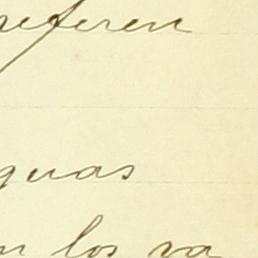 referen
guas
n los va